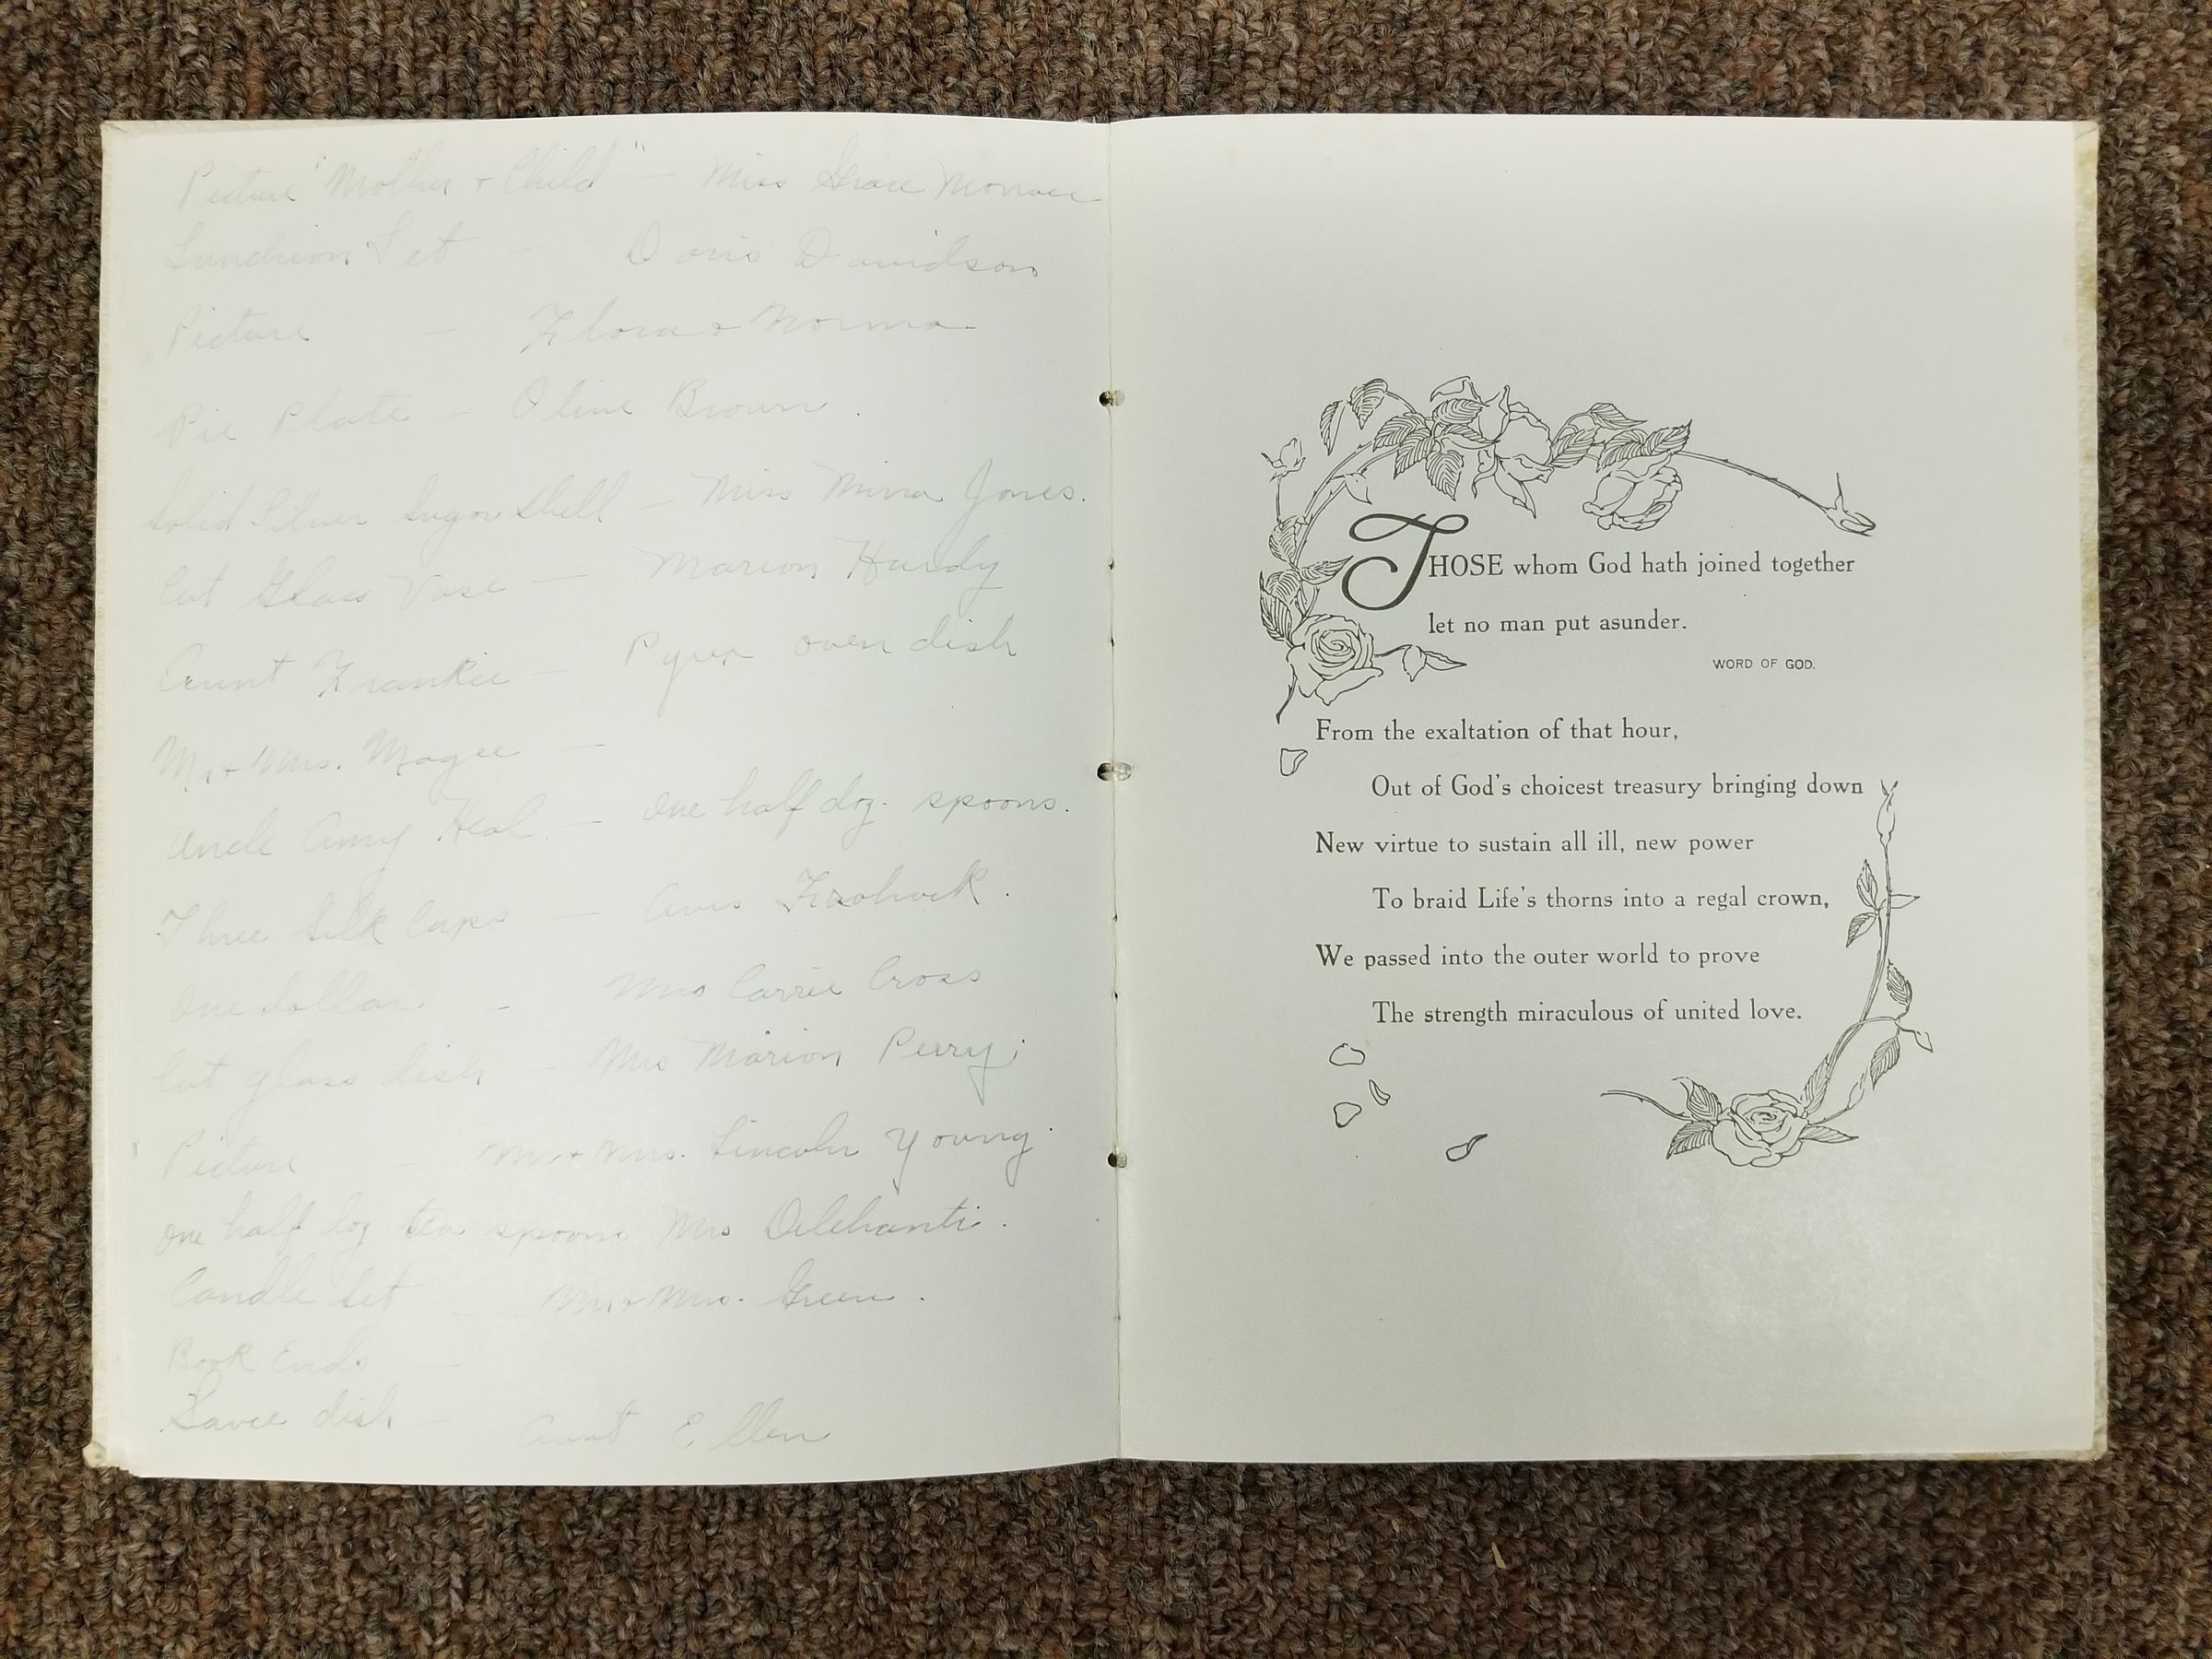 Picture "Mother + Child" — Miss Grace Monroe
Luncheon Set — Doris Davidson
Picture — Flora + Norma
Pie Plate — Olive Brown.
Solid Silver Sugar Shell — Miss Mina Jones.
Cut Glass Vase — Marion Hardy
Aunt Frankie — Pyrex oven dish
Mr + Mrs. Magee —
Uncle Amy Heal — one half doz. spoons.
Three Silk Caps — Avis
One dollar - Mrs Carrie Cross
Cut glass dish — Mrs Marion Perry.
Picture - Mr + Mrs. Lincoln Young.
one half doz tea spoons Mrs Delehanti.
Candle Set — Mr + Mrs. Green.
Book Ends —
Sauce dish — Aunt Ellen
THOSE whom God hath joined together
let no man put asunder.
WORD OF GOD.
From the exaltation of that hour,
Out of God's choicest treasury bringing down
New virtue to sustain all ill, new power
To braid Life's thorns into a regal crown,
We passed into the outer world to prove
The strength miraculous of united love.